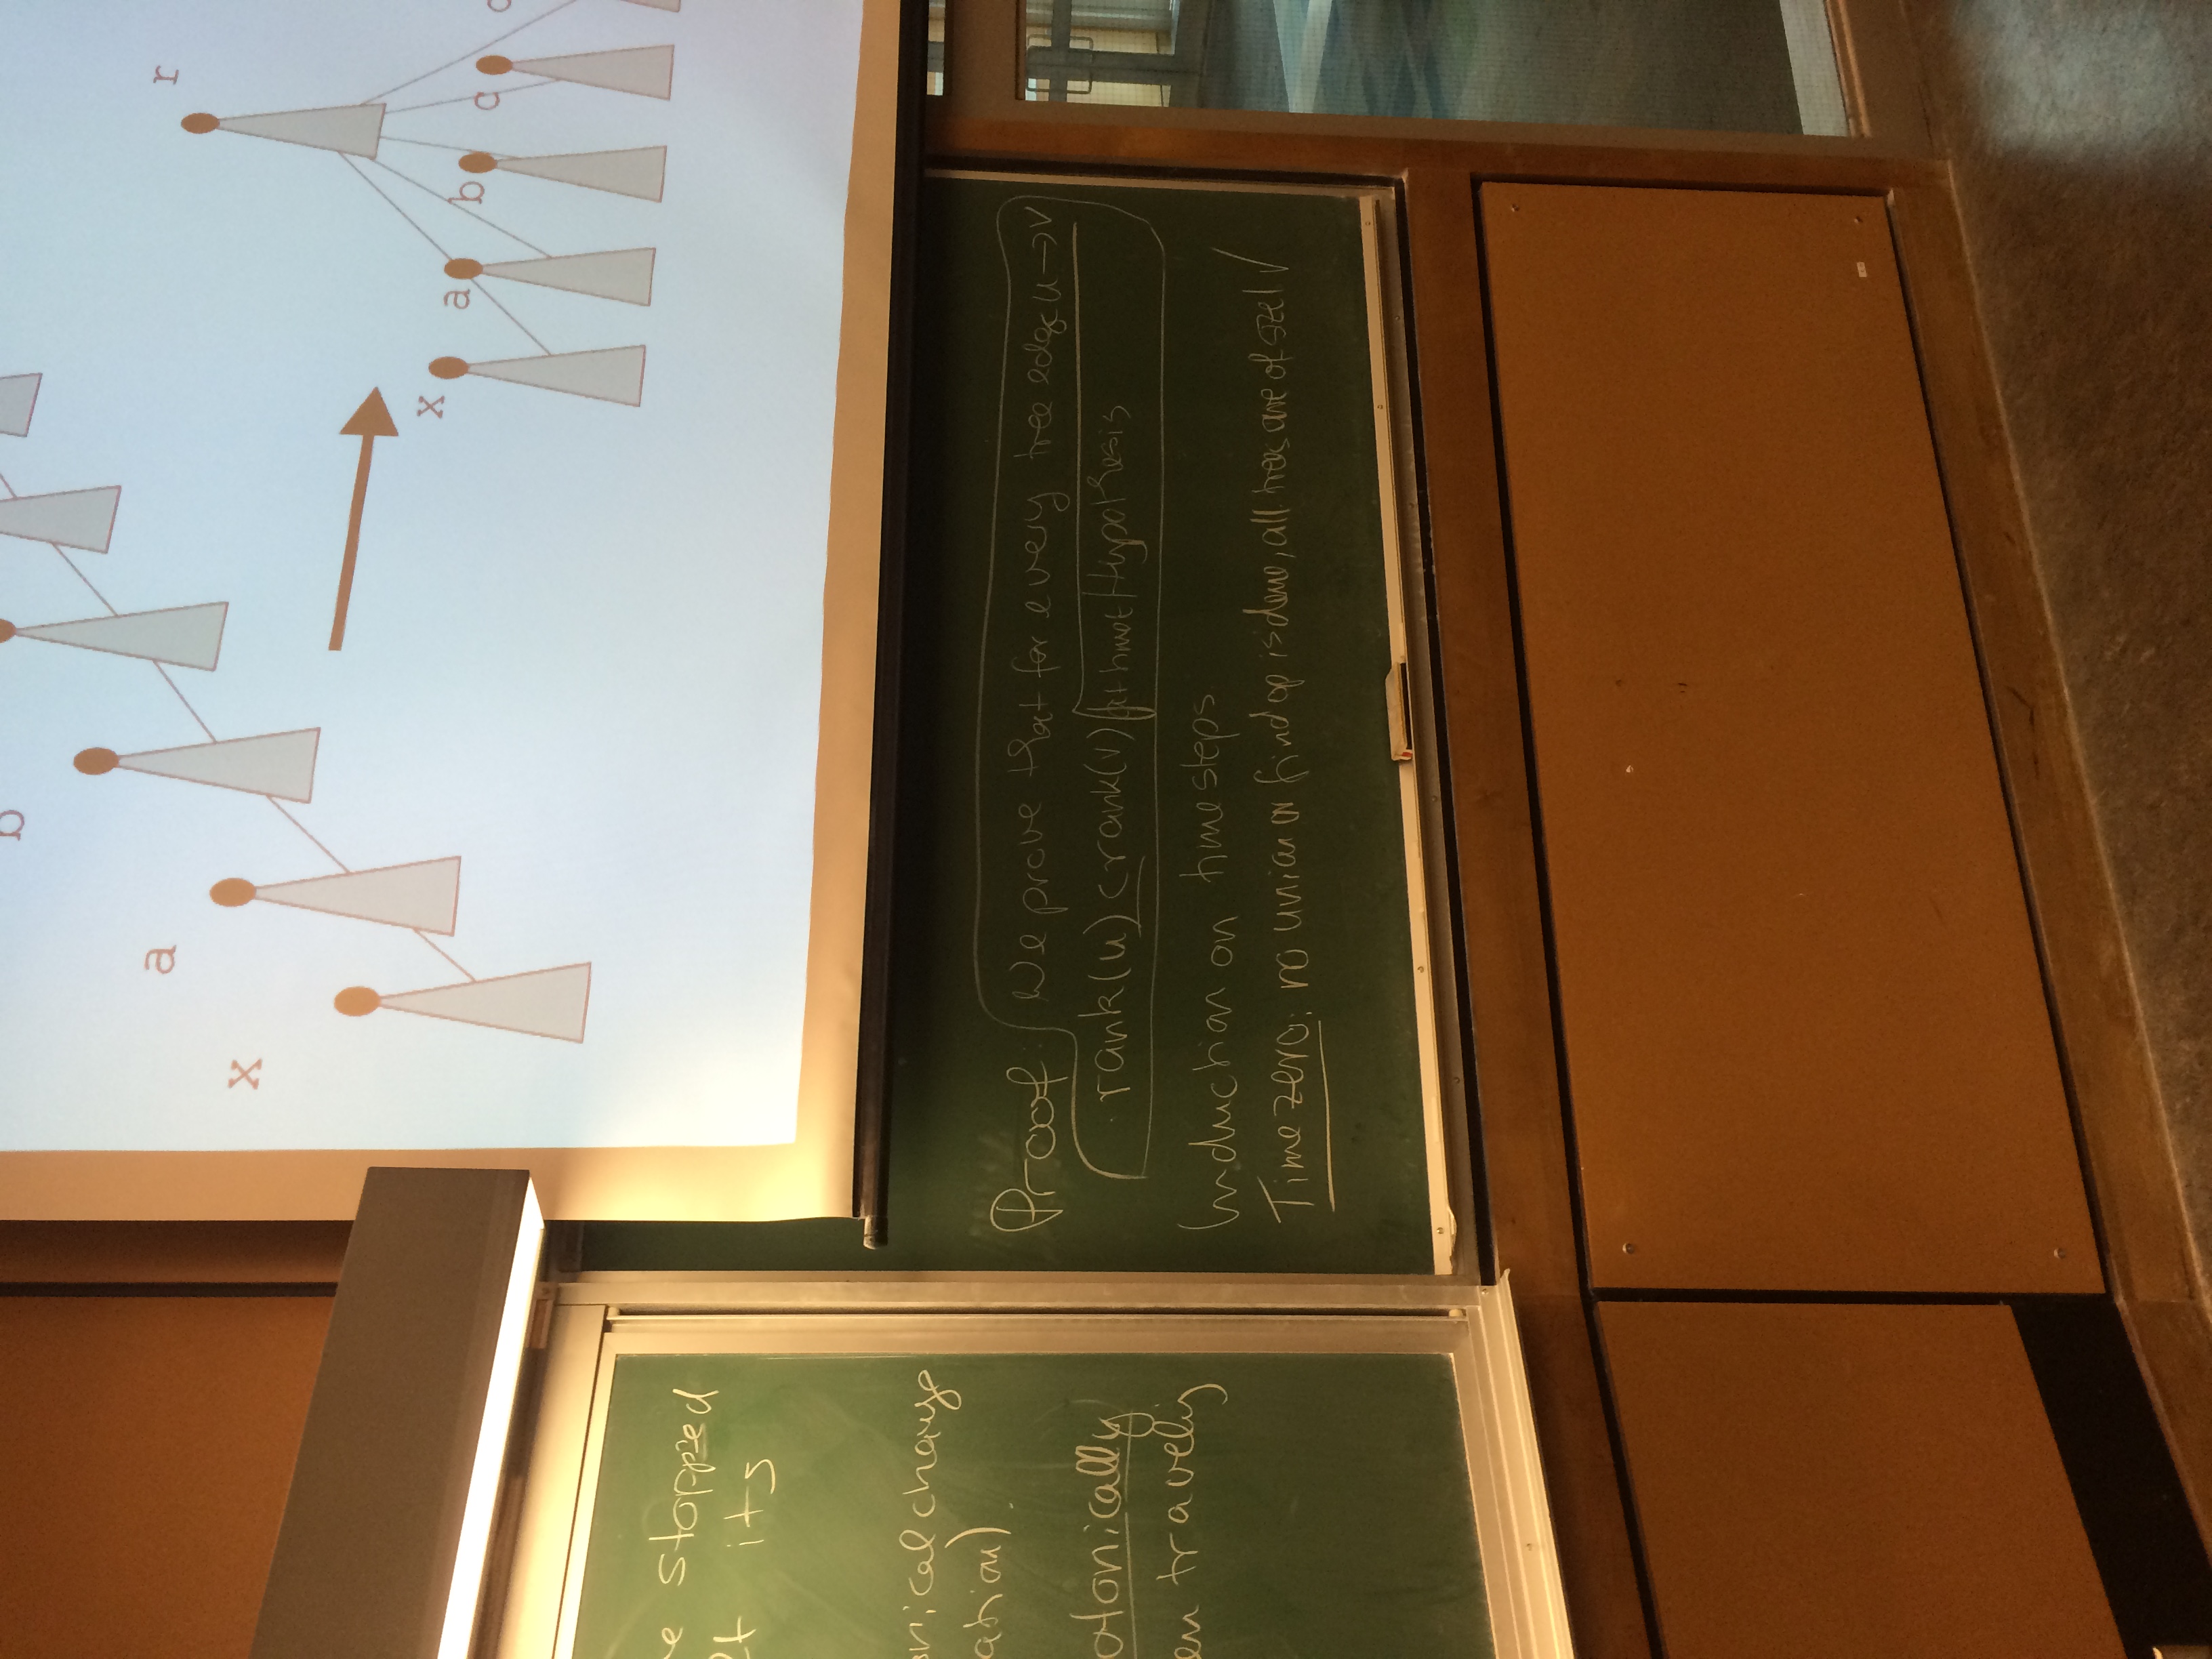 b
a
x
r
x a b c
stopped
its
change
travelig
Proof: We prove that for every tree edge u → v
rank(u) < rank(v) Hypothesis
Induction on time steps
Time zero: no union or find op is done, all trees are of size 1 ✓